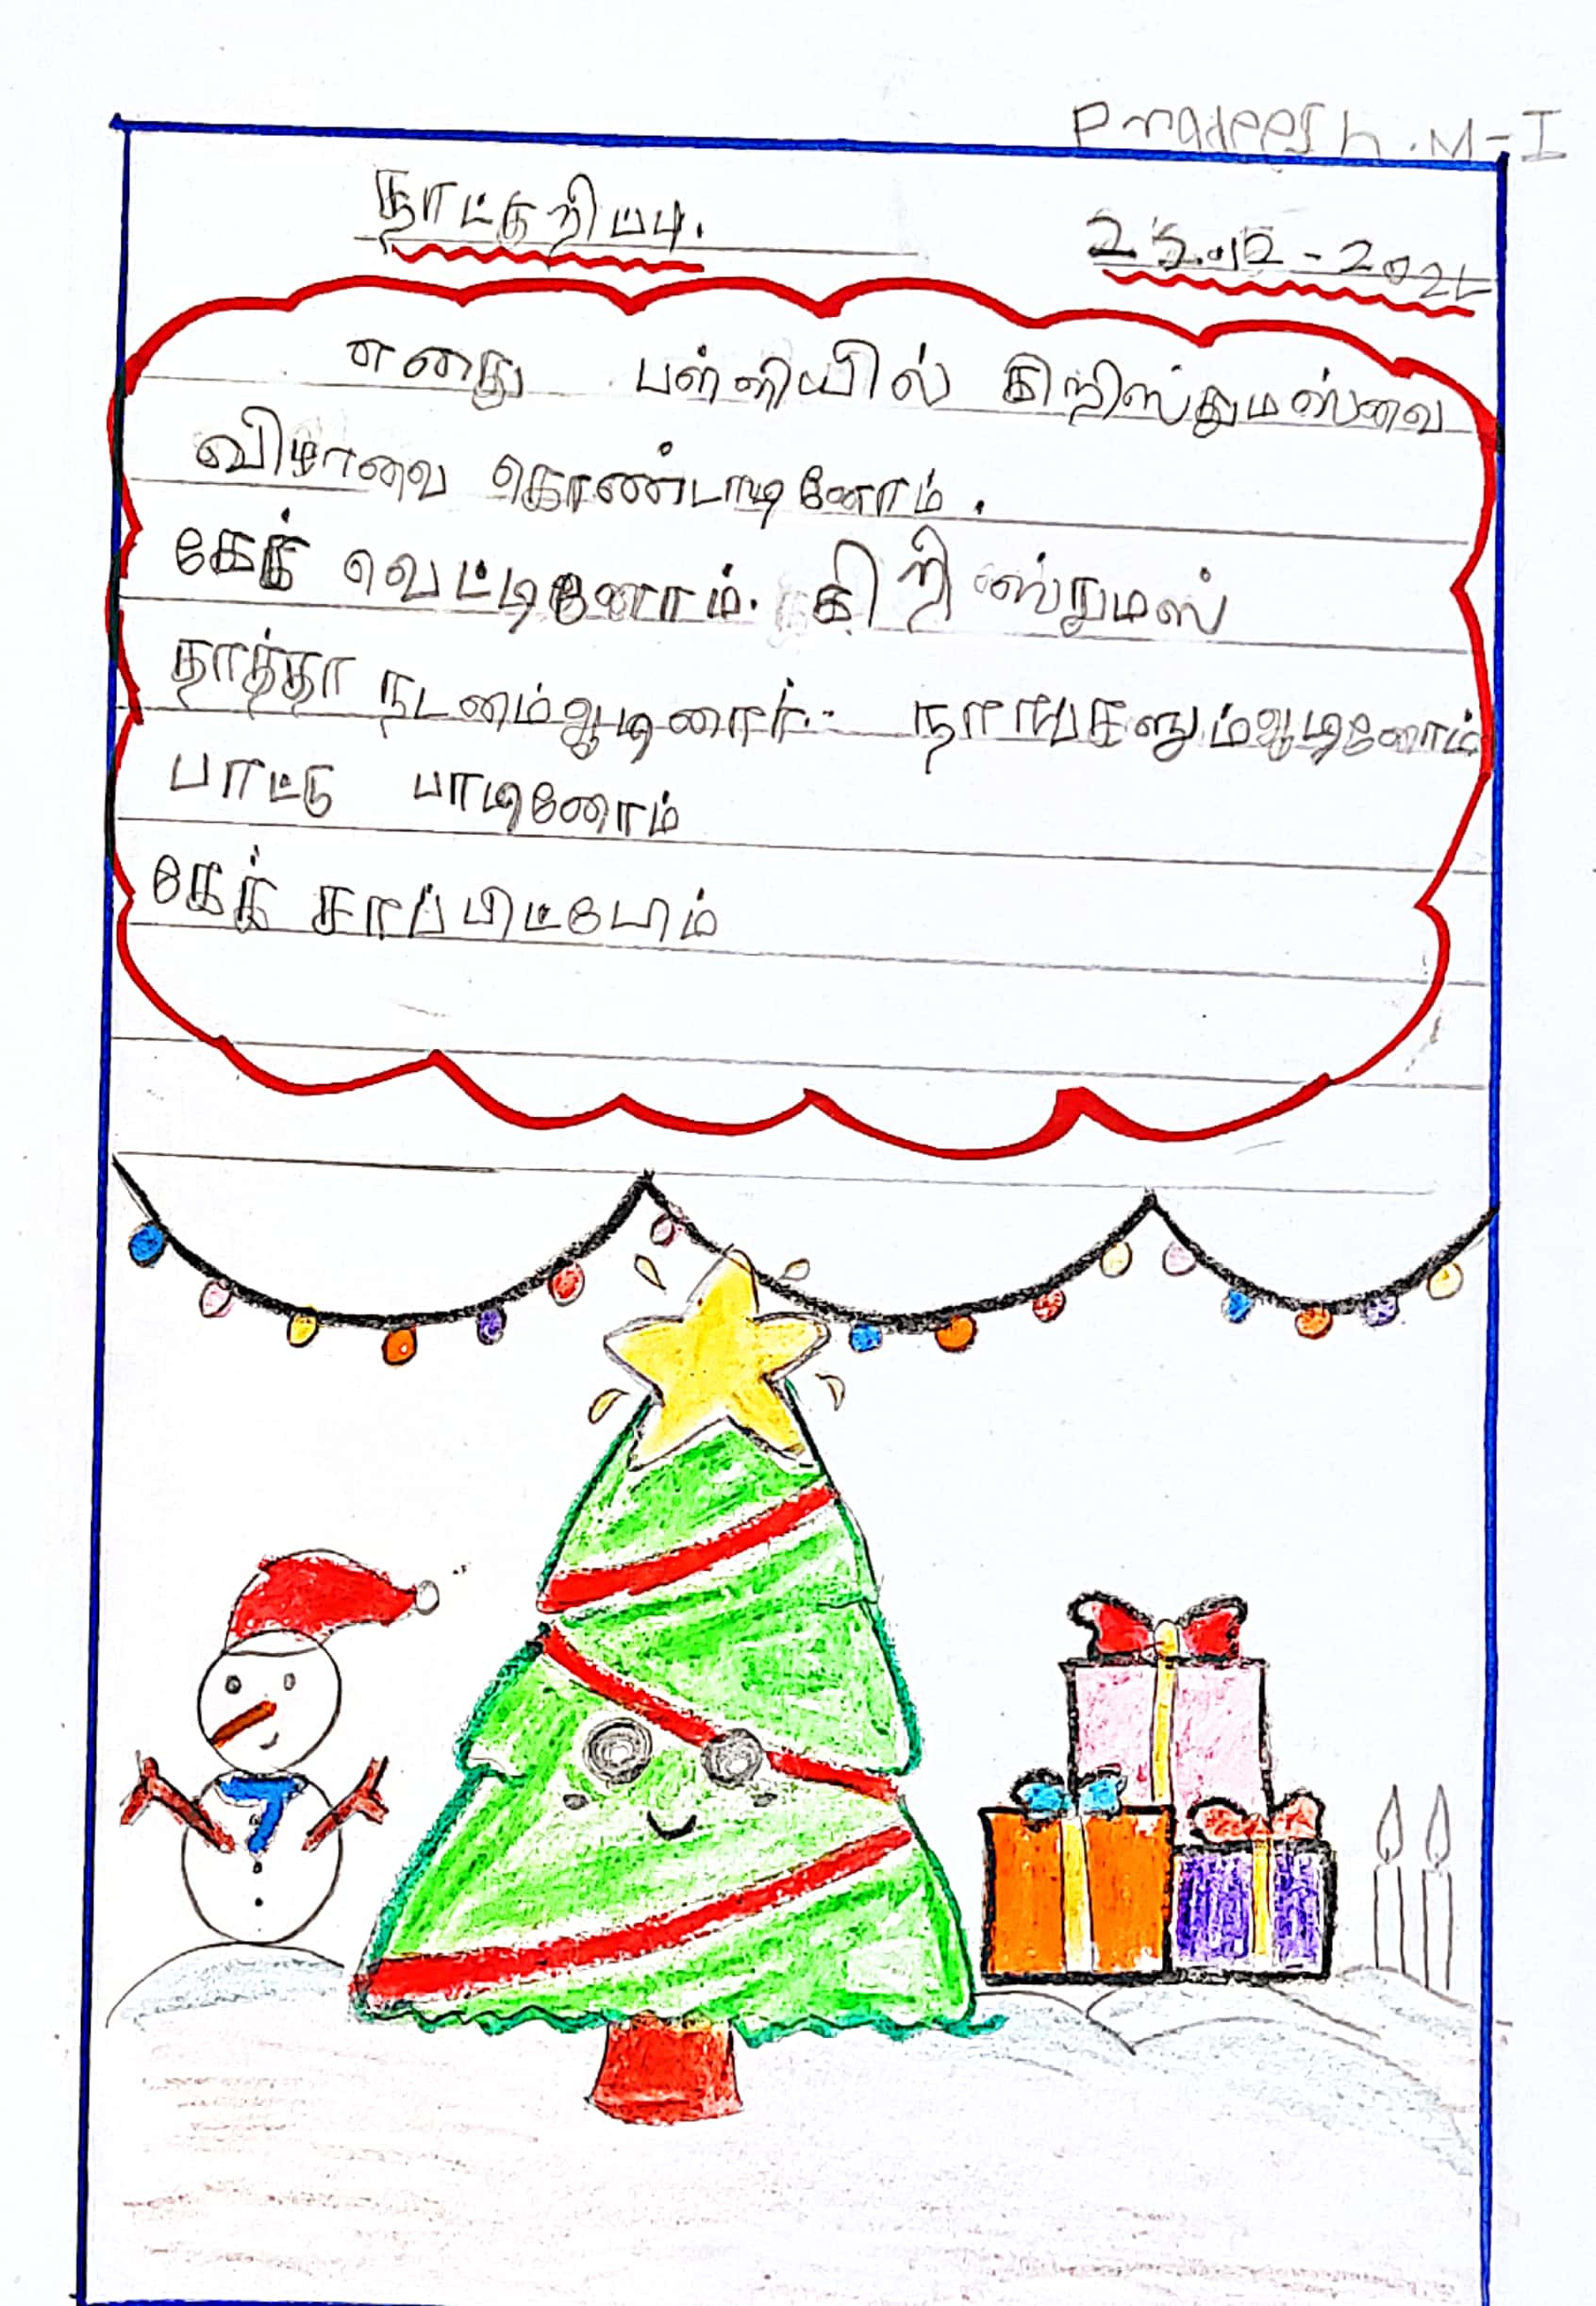 Pradeesh.M-I
நாட்குறிப்பு.
25.12-2021
எனது பள்ளியில் கிறிஸ்துமஸ்வை
விழாவை கொண்டாடினோம்.
கேக் வெட்டினோம். கிறிஸ்துமஸ்
தாத்தா நடனம்ஆடினார். நாங்களும்ஆடினோம்
பாட்டு பாடினோம்
கேக் சாப்பிட்டோம்